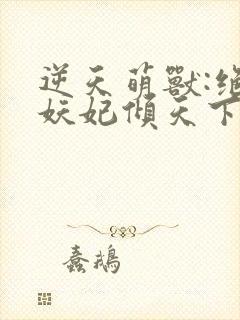 逆天萌獸:絕
妖妃傾天下
蠢鵝